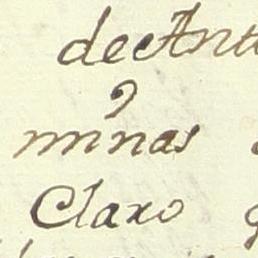 de Anto
minas
Claro